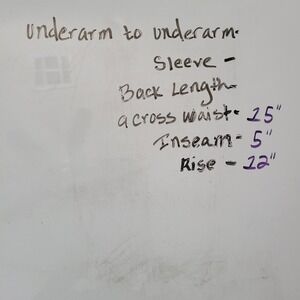 underarm to underarm-
Sleeve -
Back Length-
across waist- 15"
Inseam- 5"
Rise - 12"